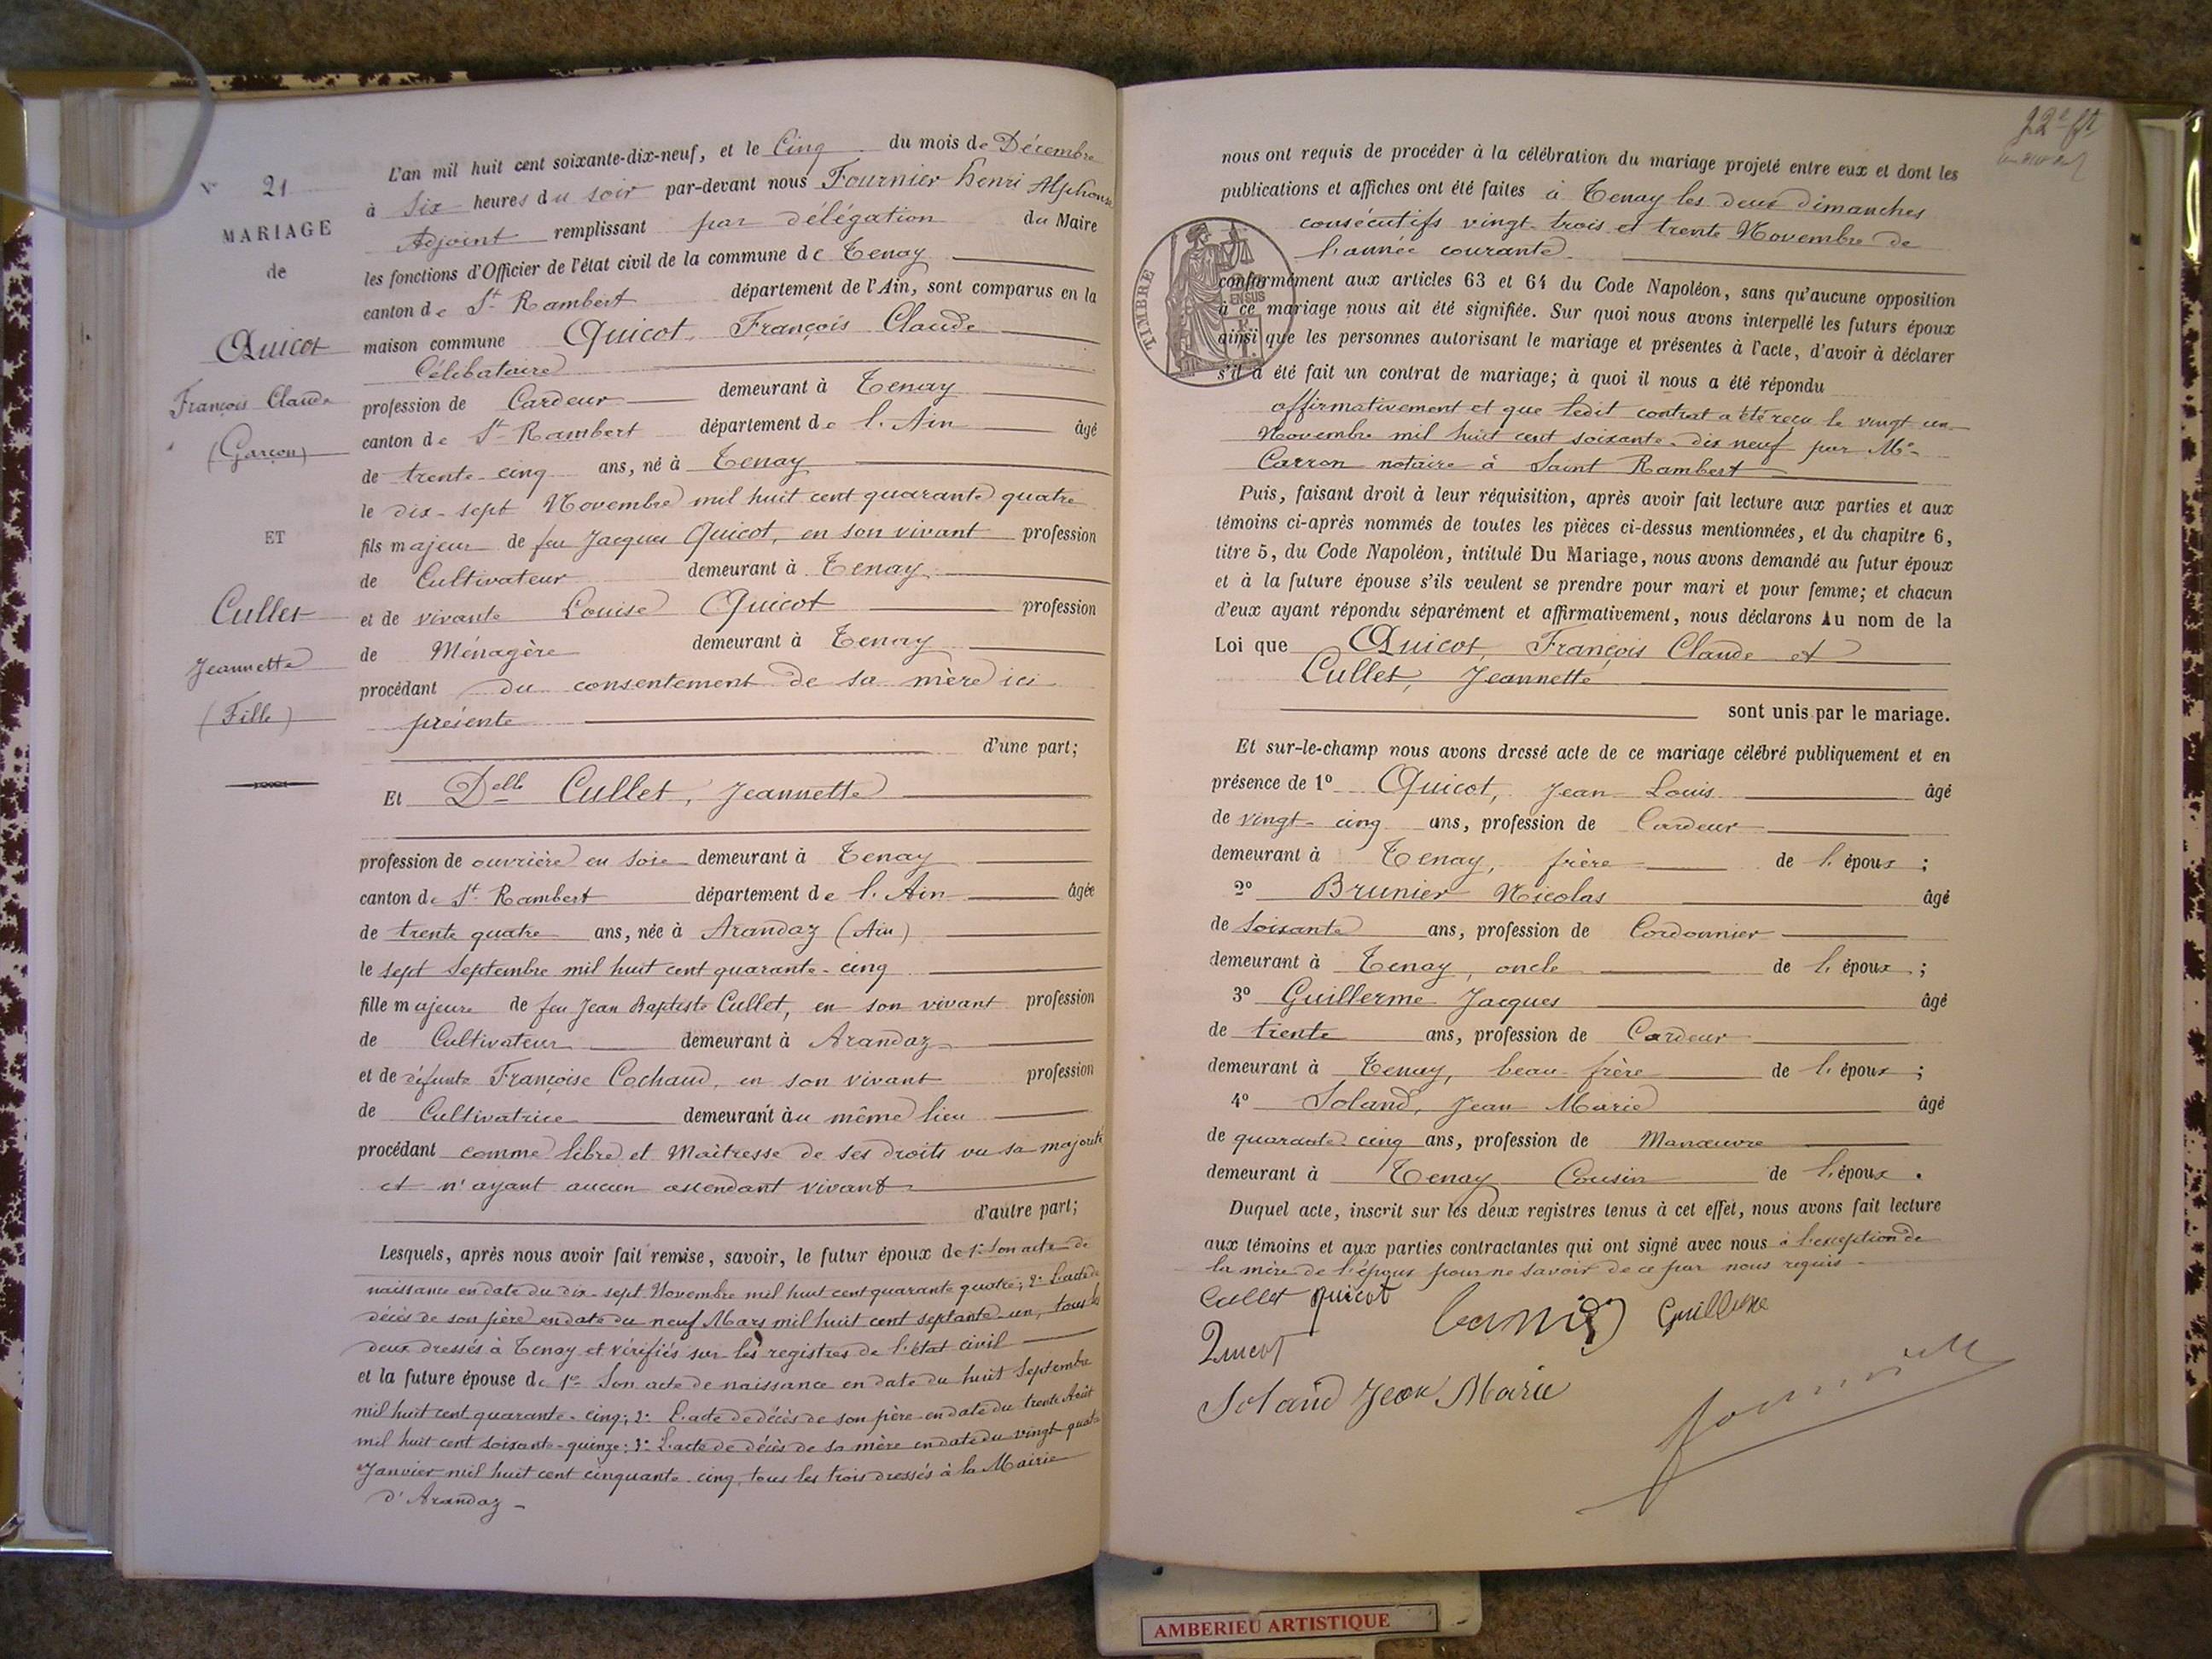 N° 21
MARIAGE
de
Quicot
François Claude
(Garçon)
ET
Cullet
Jeannette
(Fille)
L'an mil huit cent soixante-dix-neuf, et le Cinq du mois de Décembre
à Six heures du soir par-devant nous Fournier Henri Alphonse
Adjoint remplissant par délégation du Maire
les fonctions d'Officier de l'état civil de la commune de Tenay
canton de St Rambert département de l'Ain, sont comparus en la
maison commune Quicot, François Claude
Célibataire
profession de Cardeur demeurant à Tenay
canton de St Rambert département de l'Ain âgé
de trente-cinq ans, né à Tenay
le dix-sept Novembre mil huit cent quarante quatre
fils majeur de feu Jacques Quicot, en son vivant profession
de Cultivateur demeurant à Tenay
et de vivante Louise Quicot profession
de Ménagère demeurant à Tenay
procédant du consentement de sa mère ici
présente
d'une part;
Et Delle Cullet, Jeannette
profession de ouvrière en soie demeurant à Tenay
canton de St Rambert département de l'Ain âgée
de trente quatre ans, née à Arandaz (Ain)
le sept Septembre mil huit cent quarante-cinq
fille majeure de feu Jean Baptiste Cullet, en son vivant profession
de Cultivateur demeurant à Arandaz
et de défunte Françoise Cochaud, en son vivant profession
de Cultivatrice demeurant au même lieu
procédant comme libre et Maîtresse de ses droits vu sa majorité
et n'ayant aucun ascendant vivant
d'autre part;
Lesquels, après nous avoir fait remise, savoir, le futur époux de 1° Son acte de
naissance en date du dix-sept Novembre mil huit cent quarante quatre; 2° L'acte de
décès de son père en date du neuf Mars mil huit cent septante-un, tous les
deux dressés à Tenay et vérifiés sur les registres de l'état civil
et la future épouse de 1° Son acte de naissance en date du huit Septembre
mil huit cent quarante-cinq; 2° L'acte de décès de son père en date du trente Août
mil huit cent soixante-quinze; 3° L'acte de décès de sa mère en date du vingt-quatre
Janvier mil huit cent cinquante-cinq, tous les trois dressés à la Mairie
d'Arandaz
nous ont requis de procéder à la célébration du mariage projeté entre eux et dont les
publications et affiches ont été faites à Tenay les deux dimanches
consécutifs vingt-trois et trente Novembre de
l'année courante.
TIMBRE
conformément aux articles 63 et 64 du Code Napoléon, sans qu'aucune opposition
à ce mariage nous ait été signifiée. Sur quoi nous avons interpellé les futurs époux
ainsi que les personnes autorisant le mariage et présentes à l'acte, d'avoir à déclarer
s'il a été fait un contrat de mariage; à quoi il nous a été répondu
affirmativement et que ledit contrat a été reçu le vingt un
Novembre mil huit cent soixante-dix neuf par Me
Carron notaire à Saint Rambert
Puis, faisant droit à leur réquisition, après avoir fait lecture aux parties et aux
témoins ci-après nommés de toutes les pièces ci-dessus mentionnées, et du chapitre 6,
titre 5, du Code Napoléon, intitulé Du Mariage, nous avons demandé au futur époux
et à la future épouse s'ils veulent se prendre pour mari et pour femme; et chacun
d'eux ayant répondu séparément et affirmativement, nous déclarons Au nom de la
Loi que Quicot, François Claude et
Cullet, Jeannette
sont unis par le mariage.
Et sur-le-champ nous avons dressé acte de ce mariage célébré publiquement et en
présence de 1° Quicot, Jean Louis âgé
de vingt-cinq ans, profession de Cardeur
demeurant à Tenay, frère de l'époux ;
2° Brunier Nicolas âgé
de soixante ans, profession de Cordonnier
demeurant à Tenay, oncle de l'époux ;
3° Guillerme Jacques âgé
de trente ans, profession de Cardeur
demeurant à Tenay, beau-frère de l'époux ;
4° Soland, Jean Marie âgé
de quarante cinq ans, profession de Manœuvre
demeurant à Tenay Cousin de l'époux .
Duquel acte, inscrit sur les deux registres tenus à cet effet, nous avons fait lecture
aux témoins et aux parties contractantes qui ont signé avec nous à l'exception de
la mère de l'époux pour ne savoir de ce par nous requis.
Cullet Quicot Guillerme
Quicot
Soland Jean Marie
AMBERIEU ARTISTIQUE